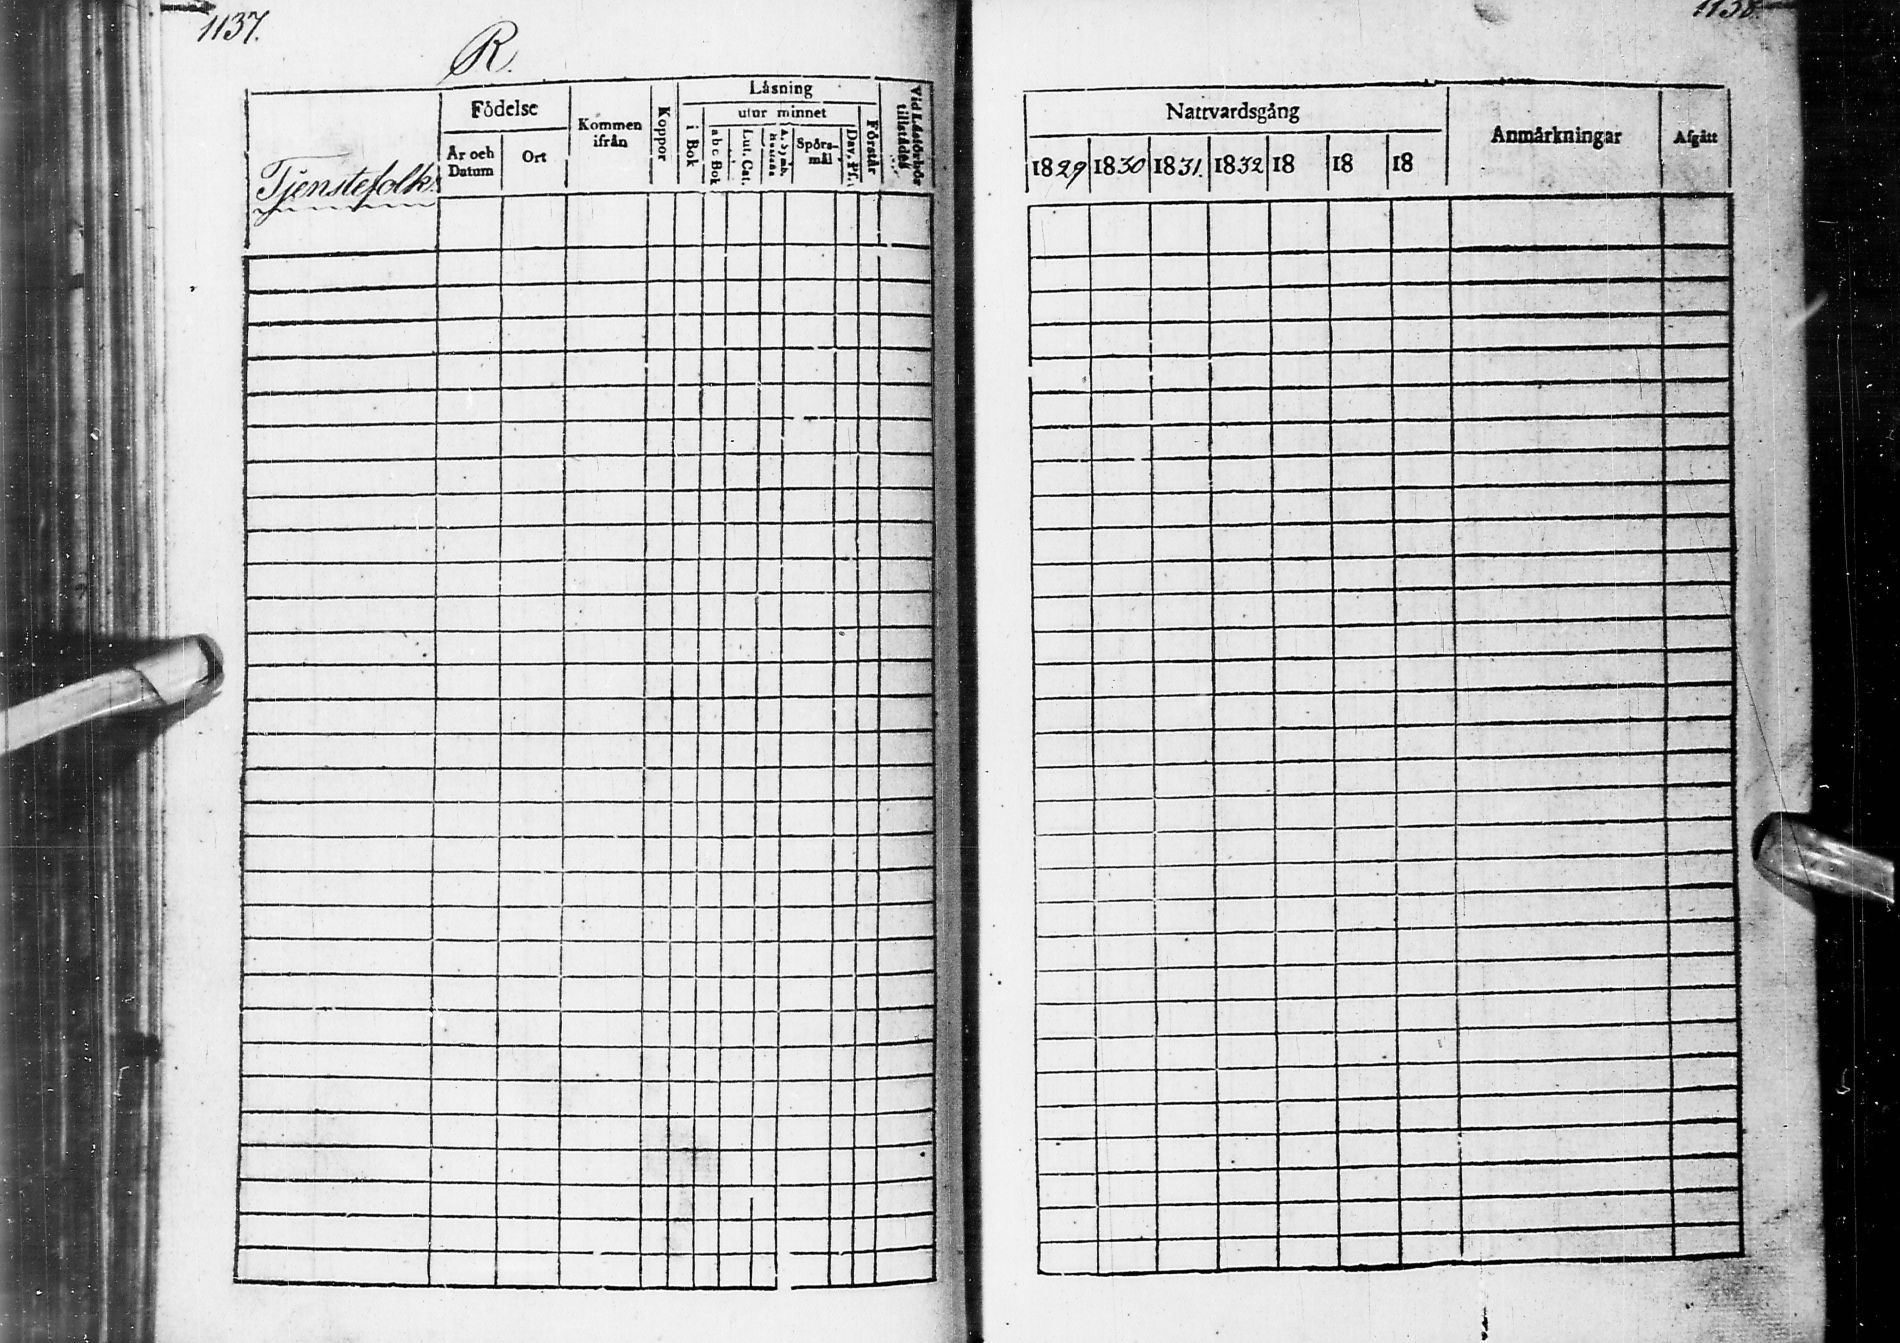 1137.
R.
Tjenstefolk
Födelse
År och Datum
Ort
Kommen ifrån
Koppor
Läsning
i Bok
utur minnet
a b c Bok
Lut. Cat.
Spörs-
mål
Dav. Ps.
Förstår
Vid Läsförhör tillstädes
1138
Nattvardsgång
1829 1830 1831. 1832 18 18 18
Anmärkningar
Afgått